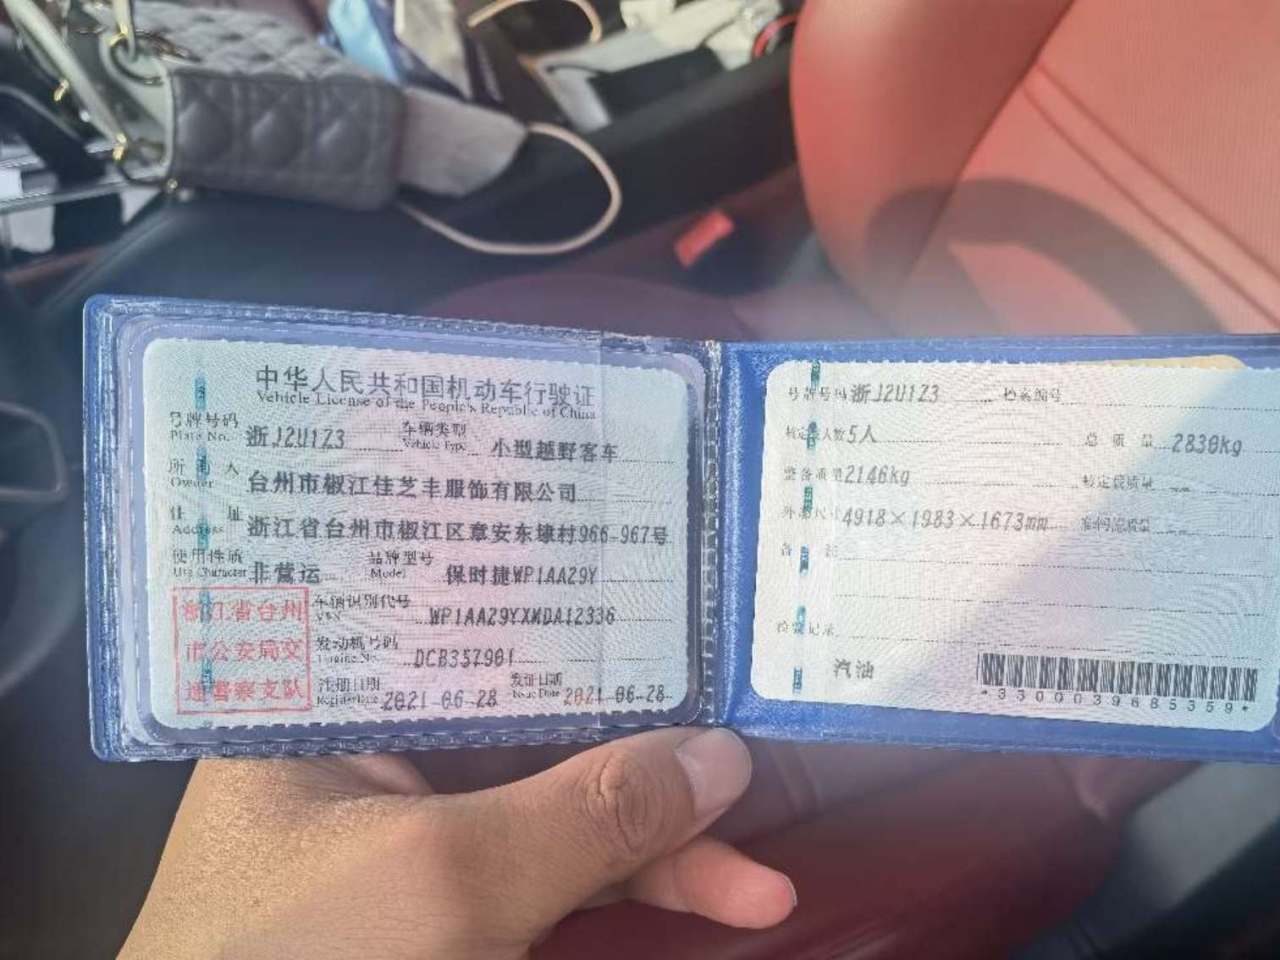 中华人民共和国机动车行驶证
Vehicle License of the People's Republic of China
号牌号码 浙J2U1Z3 车辆类型 小型越野客车
Plate No. Vehicle Type
所有人 台州市椒江佳芝丰服饰有限公司
Owner
住址 浙江省台州市椒江区章安东埭村966-967号
Address
使用性质 非营运 品牌型号 保时捷WP1AA29Y
Use Character Model
浙江省台州
市公安局交
通警察支队
车辆识别代号 WP1AA29YXMDA12336
VIN
发动机号码 DCB357901
Engine No.
注册日期 2021-06-28 发证日期 2021-06-28
Register Date Issue Date
号牌号码 浙J2U1Z3 档案编号
核定载人数 5人 总质量 2830kg
整备质量 2146kg 核定载质量
外廓尺寸 4918×1983×1673mm
备注
检验记录
汽油
*3300039685359*